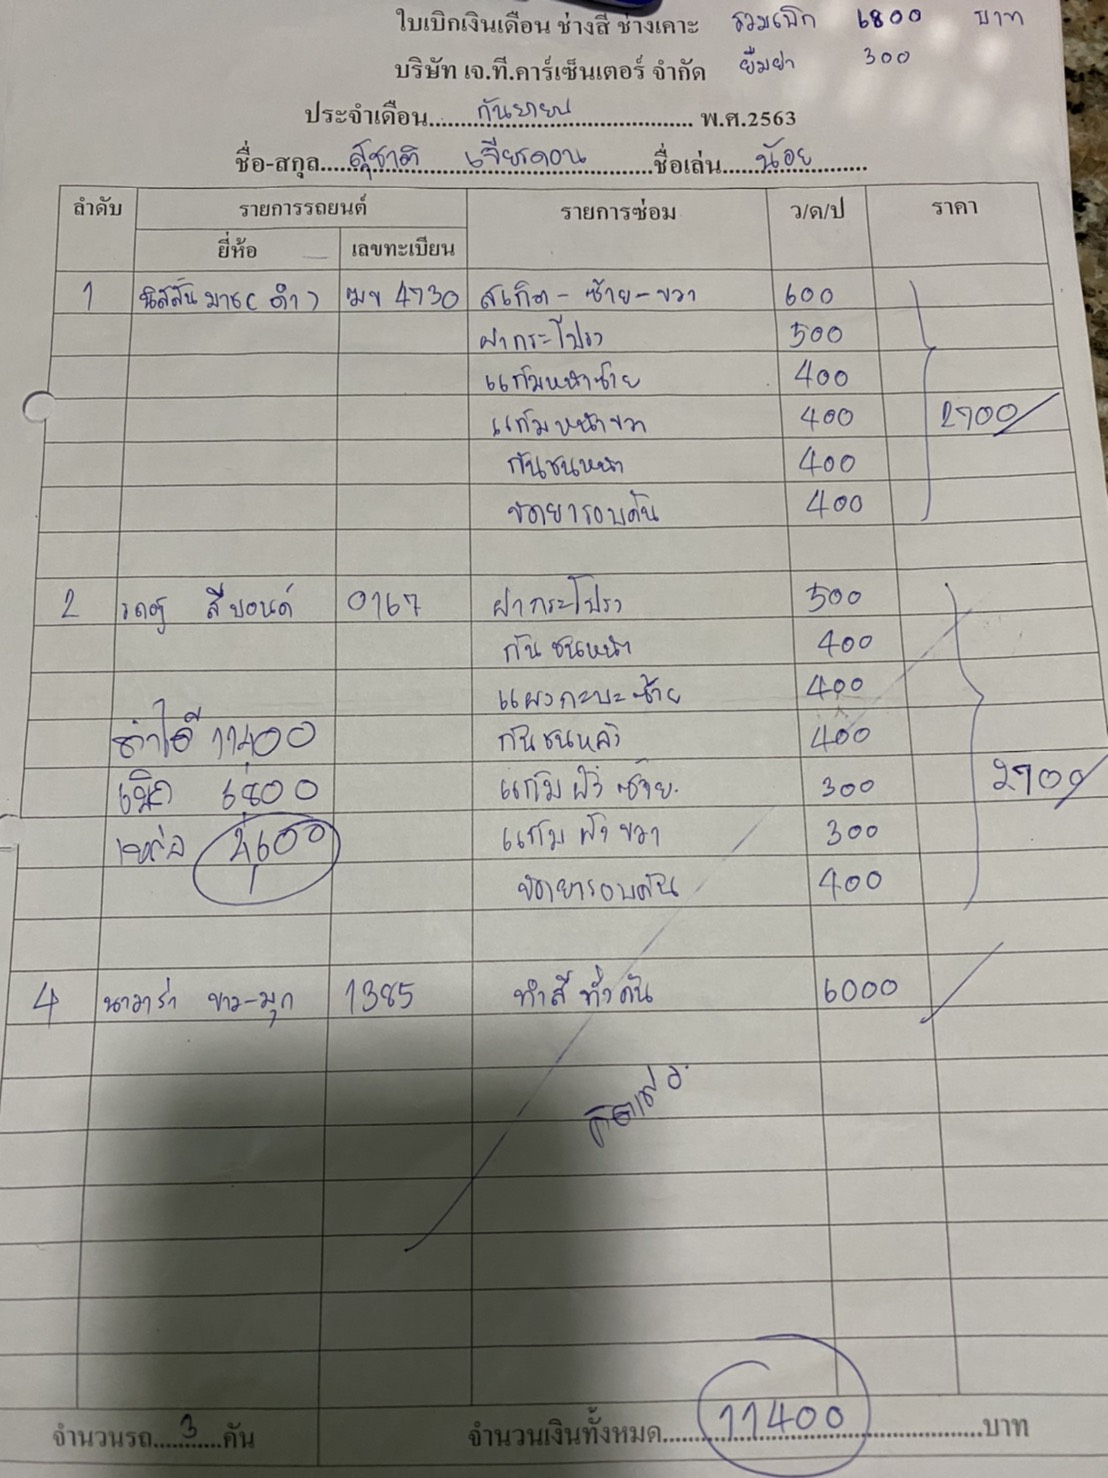 ใบเบิกเงินเดือน ช่างสี ช่างเคาะ รวมเบิก 6800 บาท
บริษัท เจ.ที.คาร์เซ็นเตอร์ จำกัด ยืมป่า 300
ประจำเดือน....กันยายน.... พ.ศ.2563
ชื่อ-สกุล....สุชาติ เจียรดอน....ชื่อเล่น....น้อย....
ลำดับ รายการรถยนต์ รายการซ่อม ว/ด/ป ราคา
ยี่ห้อ เลขทะเบียน
1 นิสสัน มาช (ดำ) ฆข 4730 สเกิต - ซ้าย - ขวา 600
ฝากระโปรง 500
แก้มหน้าซ้าย 400
แก้มหน้าขวา 400 2700
กันชนหน้า 400
ขัดยารอบคัน 400
2 รถตู้ สีบอนด์ 0167 ฝากระโปรง 500
กันชนหน้า 400
แผงกะบะซ้าย 400
ทำได้ 11400 กันชนหลัง 400
เบิก 6800 แก้มฝั่งซ้าย 300 2700
เหลือ 4600 แก้มฝั่งขวา 300
ขัดยารอบคัน 400
4 นาวาร่า ขาว-มุก 1385 ทำสีทั้งคัน 6000
จำนวนรถ....3....คัน จำนวนเงินทั้งหมด....11400....บาท